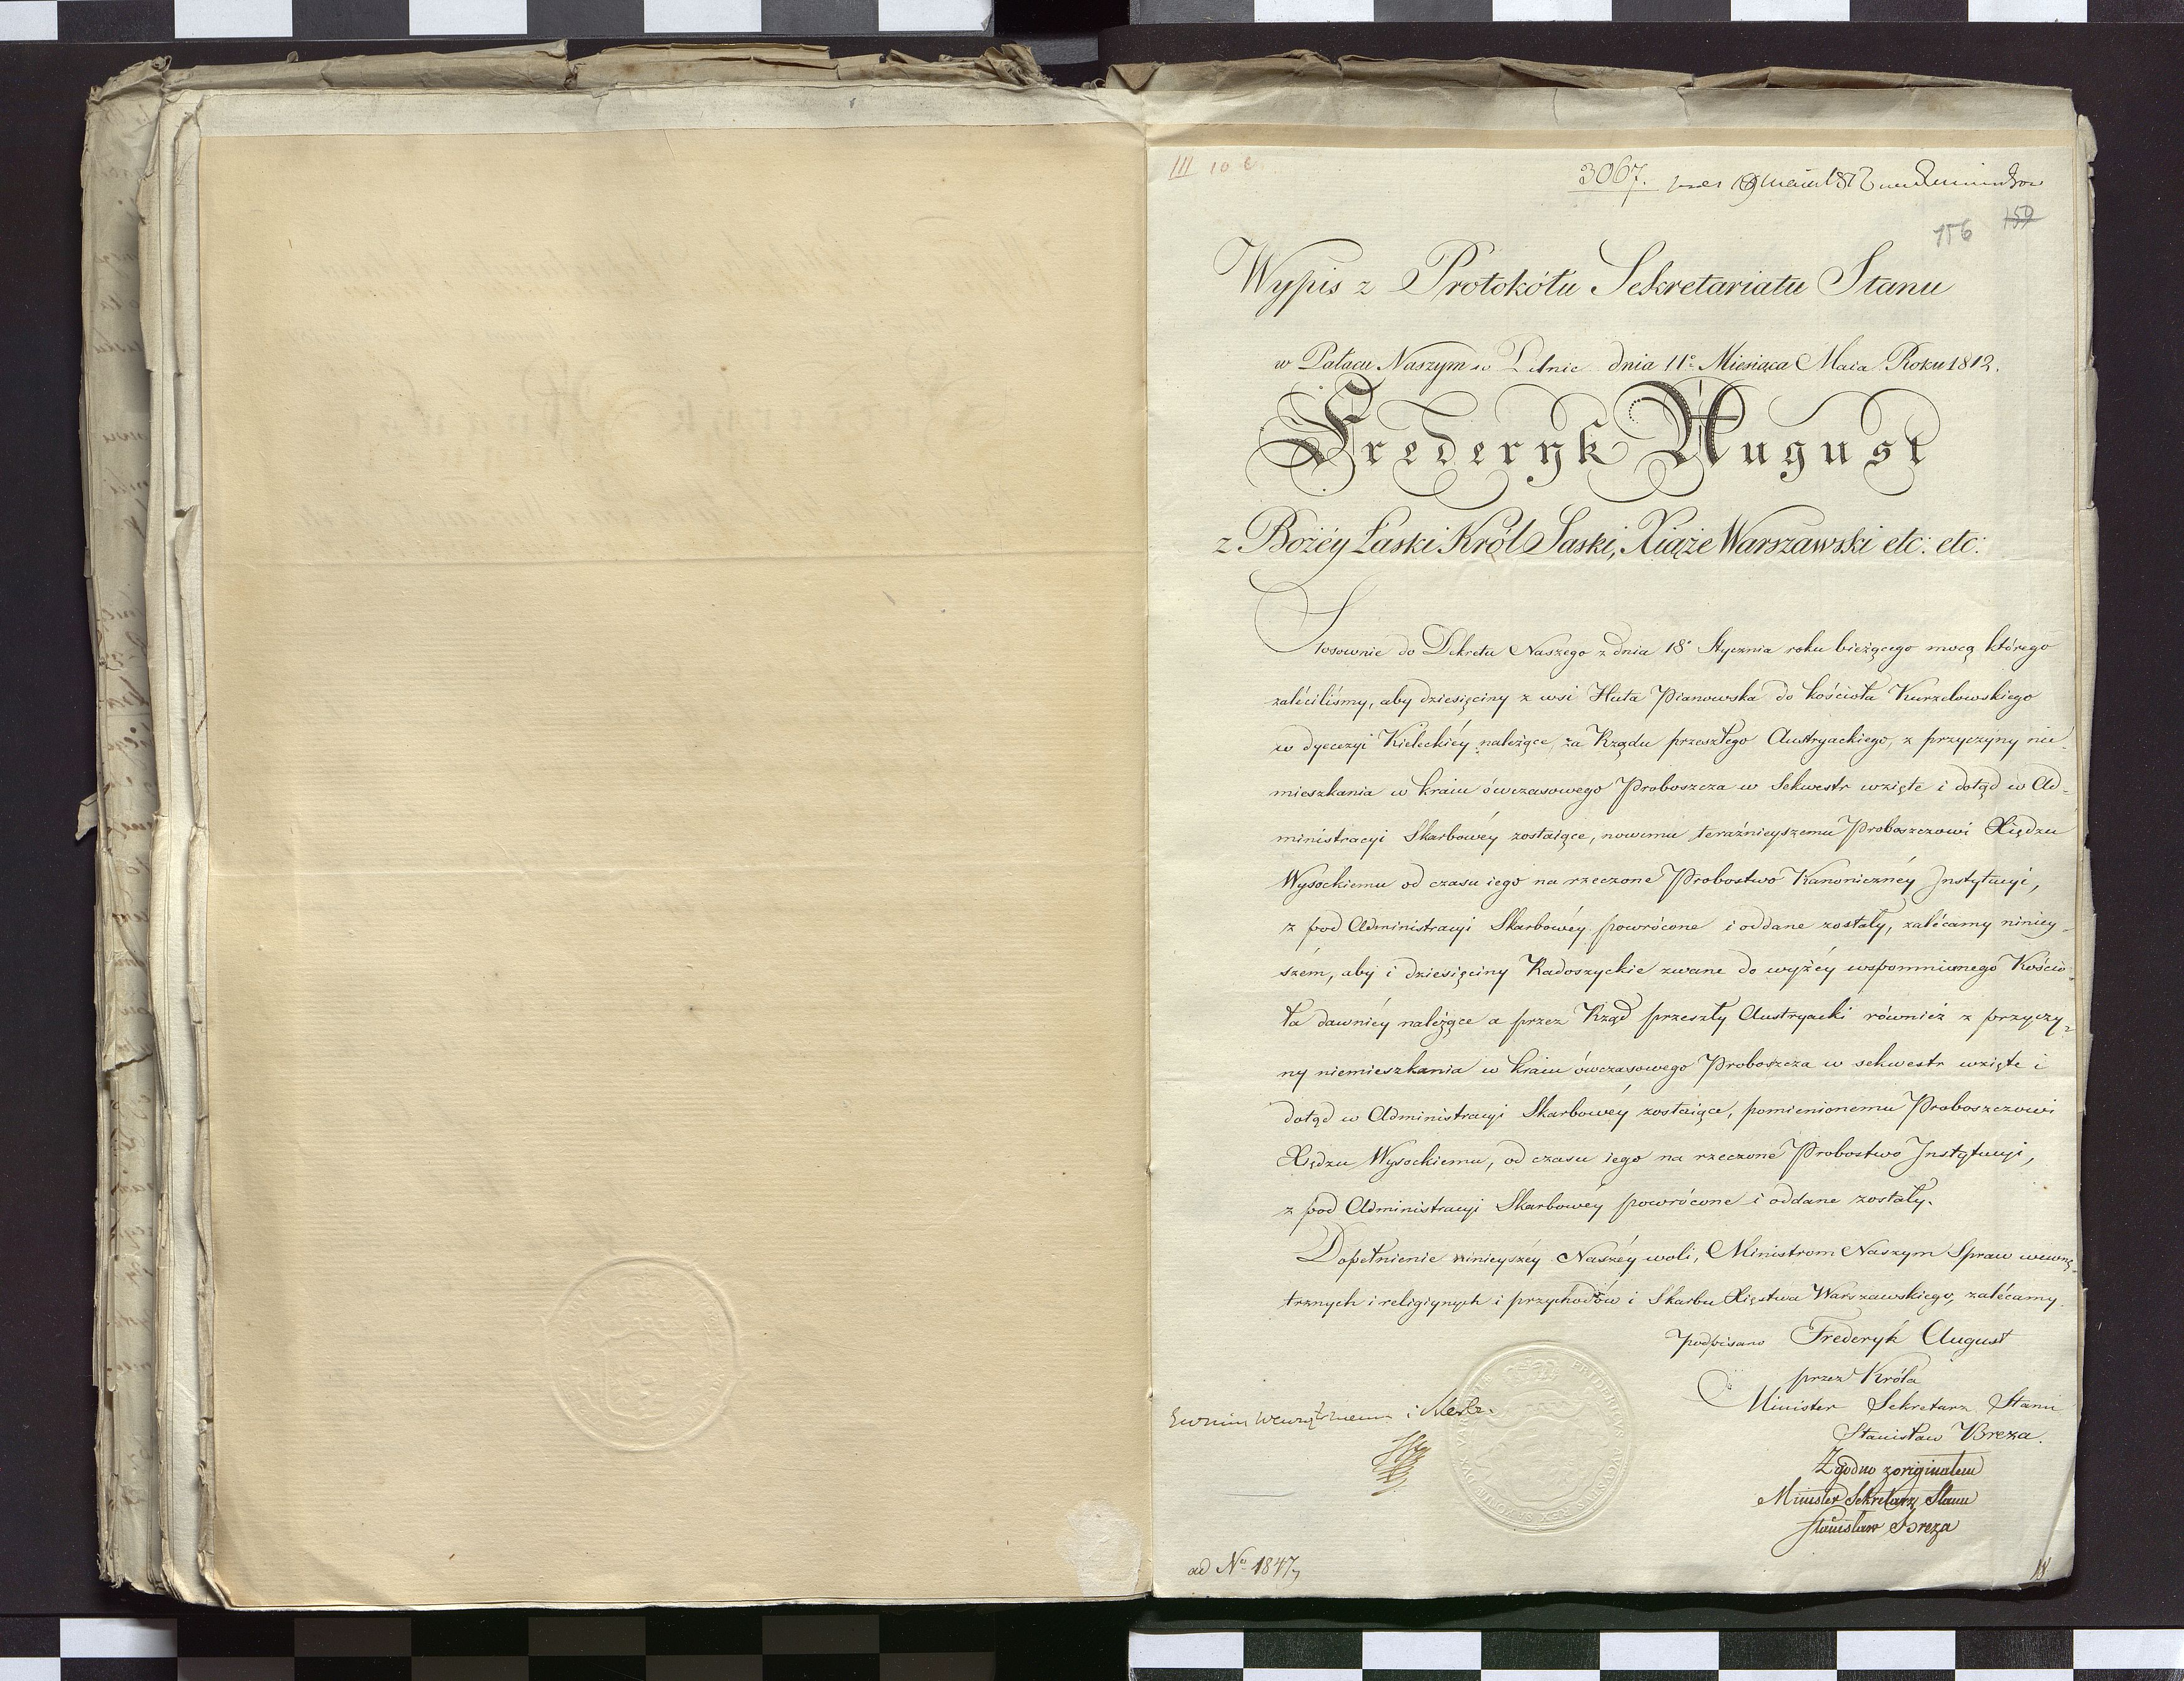 III 10 c
3067.
156 159
Wypis z Protokółu Sekretariatu Stanu
w Pałacu Naszym w Pilnic dnia 11º Miesiąca Maia Roku 1812.
Frederyk August
z Bożéy Łaski Król Saski, Xiąże Warszawski etc: etc:
Stosownie do Dekretu Naszego z dnia 18º Stycznia roku bieżącego mocą którego
zaléciliśmy, aby dziesięciny z wsi Huta Pianowska do kościoła Kurzelowskiego
w dyecezyi Kieleckiéy należące, za Rządu przeszłego Austryackiego, z przyczyny nie-
mieszkania w kraiu ówczasowego Proboszcza w Sekwestr wzięte i dotąd w Ad-
ministracyi Skarbowéy zostaiące, nowemu teraźnieyszemu Proboszczowi Xiędzu
Wysockiemu od czasu iego na rzeczone Probostwo Kanonicznéy Instytucyi,
z pod Administracyi Skarbowéy powrócone i oddane zostały, zalécamy niniey-
szém, aby i dziesięciny Radoszyckie zwane do wyżéy wspomnionego Kościo-
ła dawniéy należące a przez Rząd przeszły Austryacki również z przyczy-
ny niemieszkania w kraiu ówczasowego Proboszcza w sekwestr wzięte i
dotąd w Administracyi Skarbowéy zostaiące, pomienionemu Proboszczowi
Xiędzu Wysockiemu, od czasu iego na rzeczone Probostwo Instytucyi,
z pod Administracyi Skarbowéy powrócone i oddane zostały.
Dopełnienie ninieyszéy Naszéy woli, Ministrom Naszym Spraw wewnę-
trznych i religiynych i przychodów i Skarbu Xięstwa Warszawskiego, zalécamy.
podpisano Frederyk August
przez Króla
Minister Sekretarz Stanu
Stanisław Breza.
Zgodno z originałem
Minister Sekretarz Stanu
Stanisław Breza
ad Nº 1847